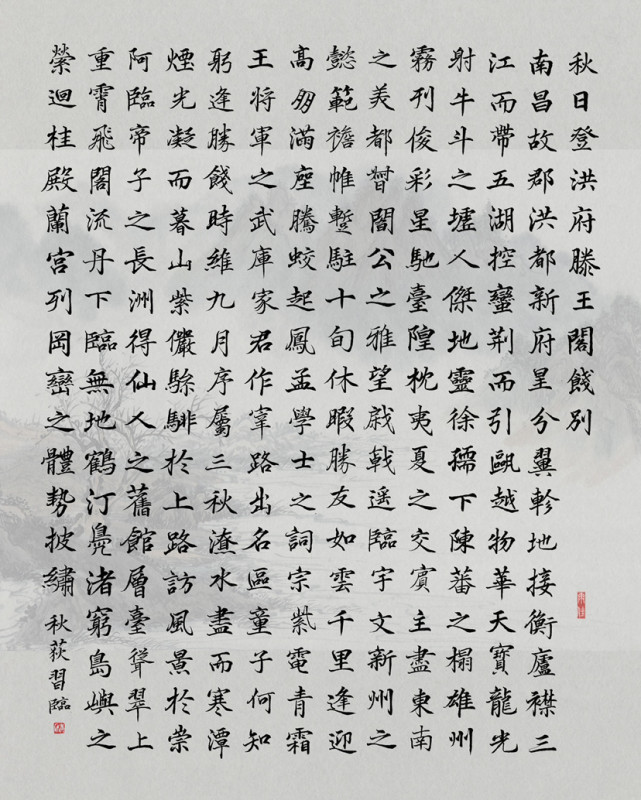 秋日登洪府滕王閣餞別
南昌故郡洪都新府星分翼軫地接衡廬襟三
江而帶五湖控蠻荆而引甌越物華天寶龍光
射牛斗之墟人傑地靈徐孺下陳蕃之榻雄州
霧列俊彩星馳臺隍枕夷夏之交賓主盡東南
之美都督閻公之雅望棨戟遥臨宇文新州之
懿範襜帷蹔駐十旬休暇勝友如雲千里逢迎
高朋滿座騰蛟起鳳孟學士之詞宗紫電青霜
王將軍之武庫家君作宰路出名區童子何知
躬逢勝餞時維九月序屬三秋潦水盡而寒潭
煙光凝而暮山紫儼驂騑於上路訪風景於崇
阿臨帝子之長洲得仙人之舊館層臺聳翠上
重霄飛閣流丹下臨無地鶴汀鳧渚窮島嶼之
縈迴桂殿蘭宮列岡巒之體勢披繡
秋荻習臨